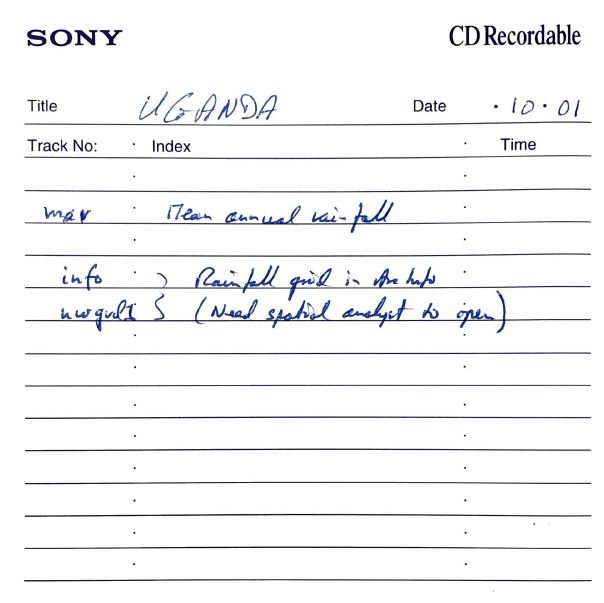 SONY CD Recordable
Title UGANDA Date · 10 · 01
Track No: Index Time
mar Mean annual rainfall
info } Rainfall grid in Arc Info
} (Need spatial analyst to open)